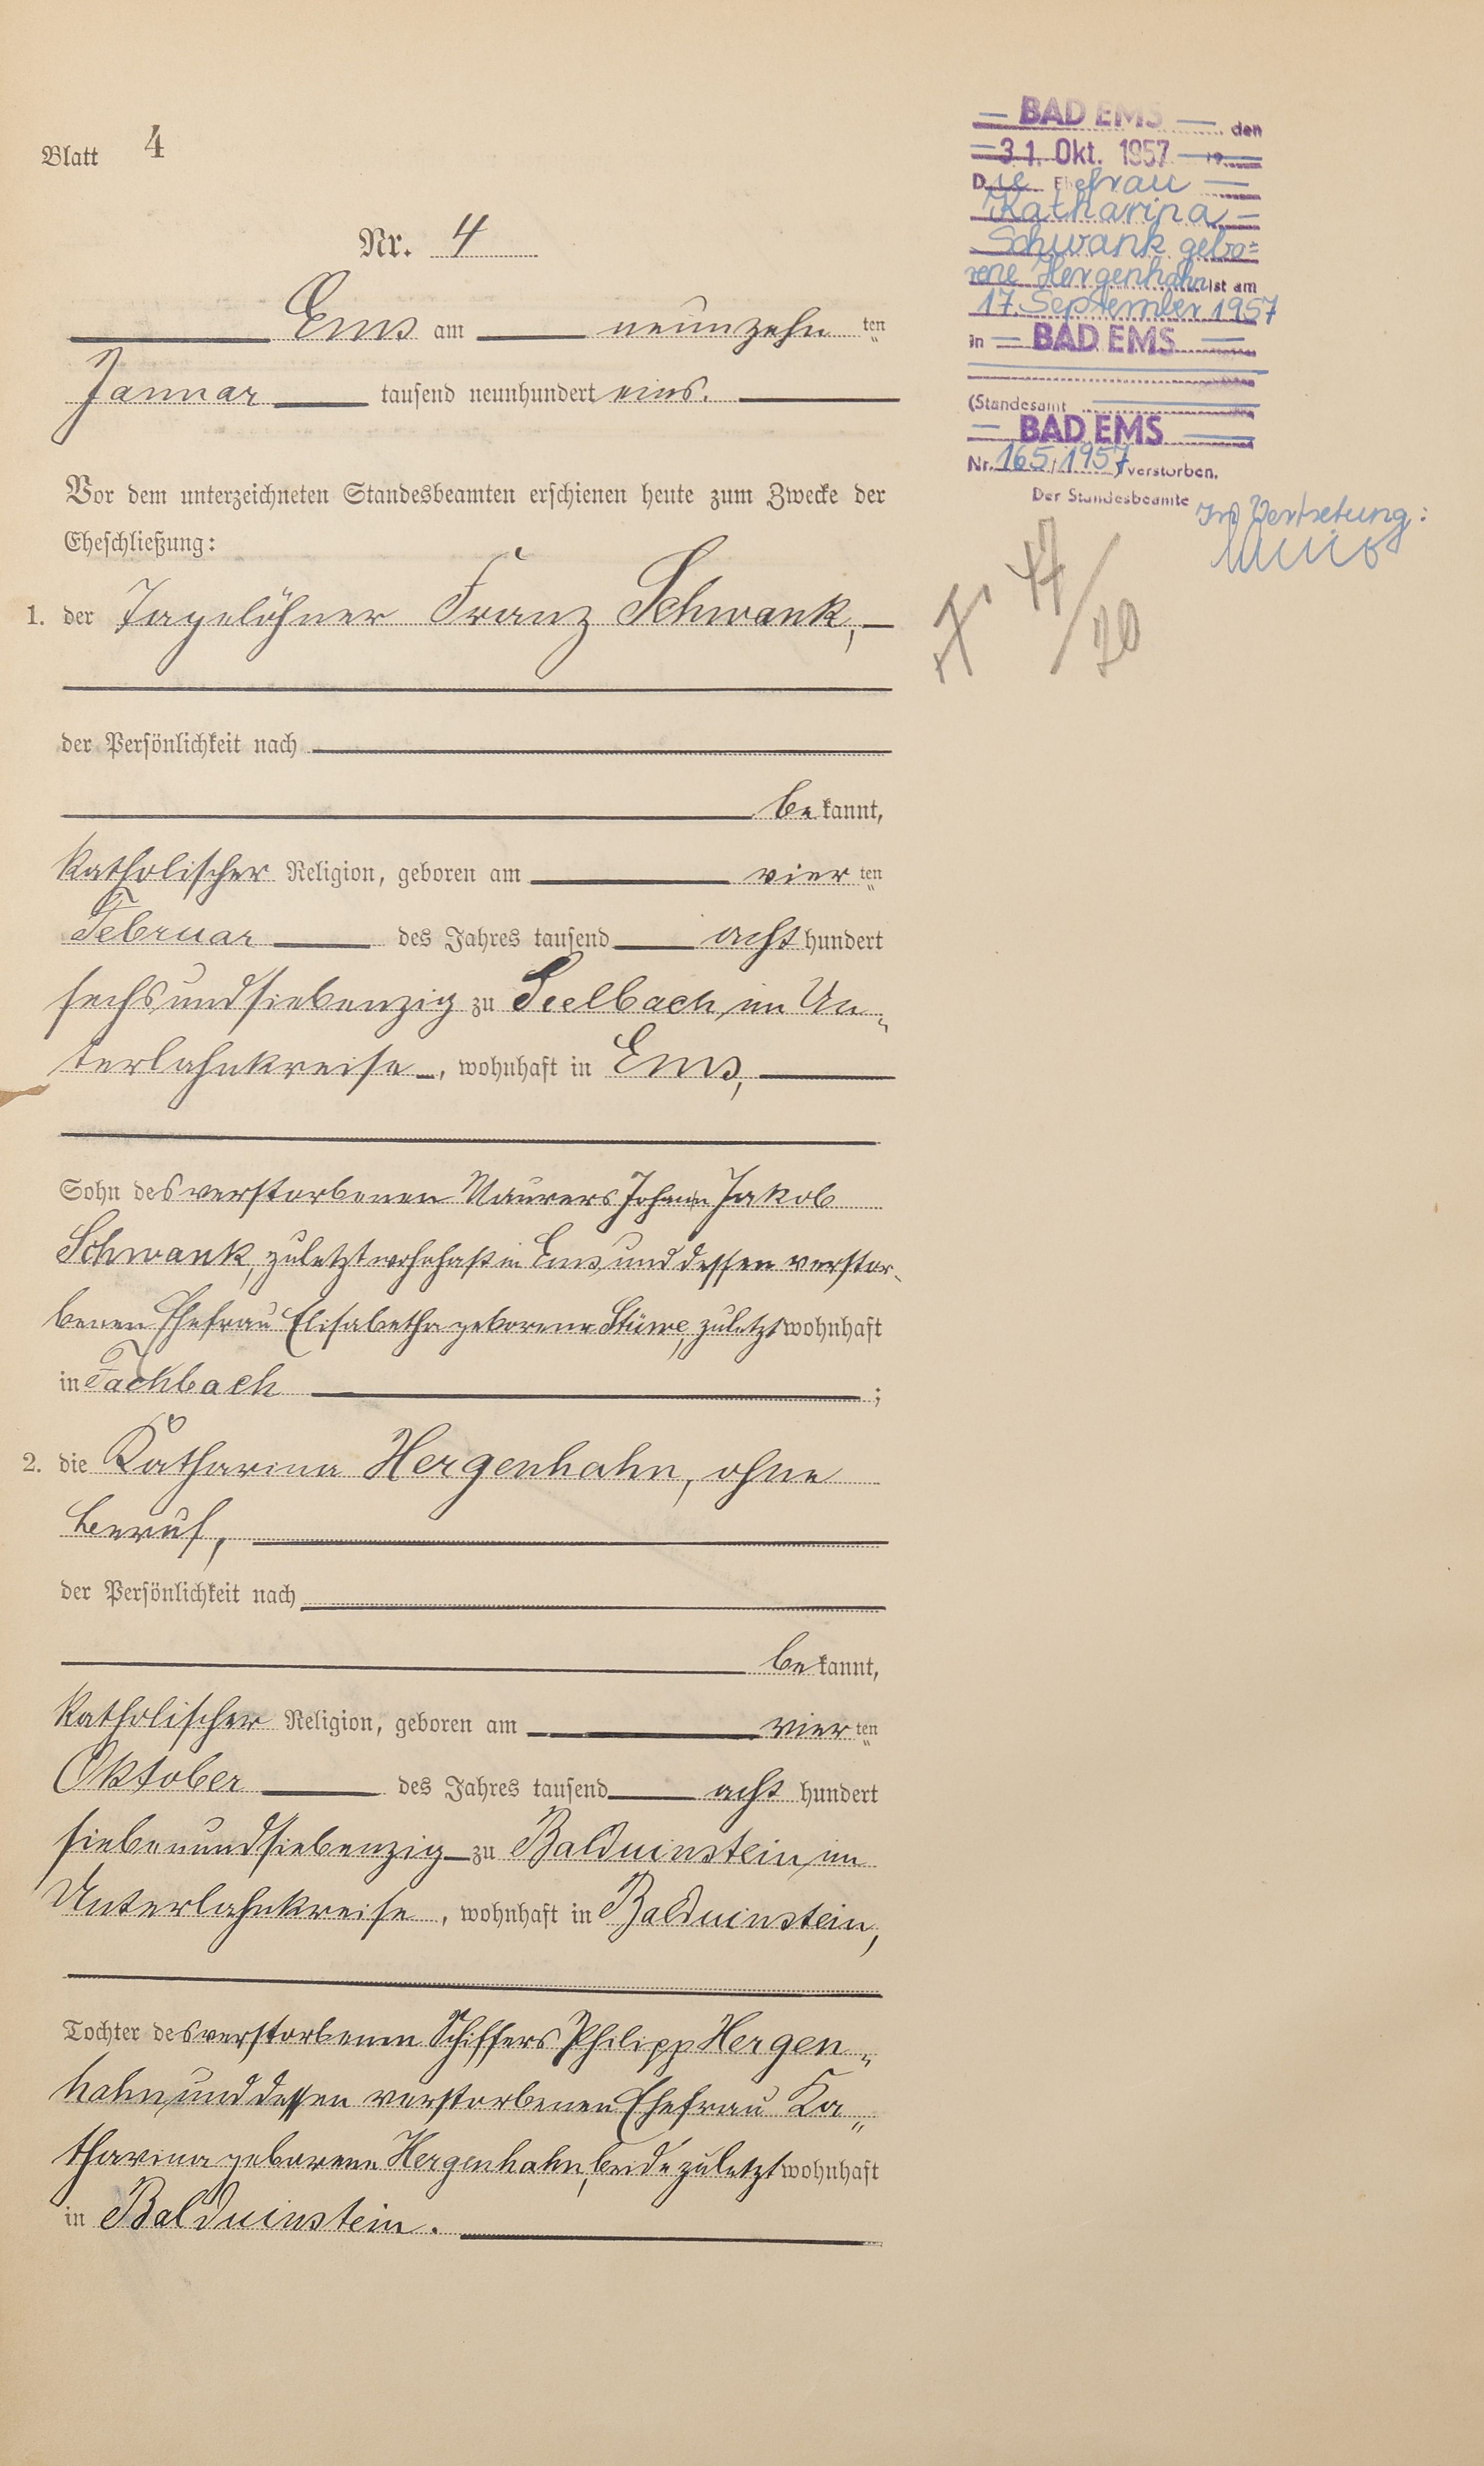 Blatt 4
Nr. 4
Ems am neunzehn ten
Januar tausend neunhundert eins.
Vor dem unterzeichneten Standesbeamten erschienen heute zum Zwecke der
Eheschließung:
1. der Tagelöhner Franz Schwank,
der Persönlichkeit nach
be kannt,
katholischer Religion, geboren am vier ten
Februar des Jahres tausend acht hundert
sechsundsiebenzig zu Seelbach im Un-
terlahnkreise, wohnhaft in Ems,
Sohn des verstorbenen Maurers Johann Jakob
Schwank, zuletzt wohnhaft in Ems und dessen verstor-
benen Ehefrau Elisabetha geborene Stüwe, zuletzt wohnhaft
in Fachbach ;
2. die Katharina Hergenhahn, ohne
Beruf,
der Persönlichkeit nach
be kannt,
katholischer Religion, geboren am vier ten
Oktober des Jahres tausend acht hundert
siebenundsiebenzig zu Balduinstein im
Unterlahnkreise, wohnhaft in Balduinstein,
Tochter des verstorbenen Schiffers Philipp Hergen-
hahn und dessen verstorbenen Ehefrau Ka-
tharina geborene Hergenhahn, beide zuletzt wohnhaft
in Balduinstein.
BAD EMS den
31. Okt. 1957 19
Die Ehefrau
Katharina
Schwank gebo=
rene Hergenhahn ist am
17. September 1957
in BAD EMS
(Standesamt
BAD EMS
Nr. 165/1957) verstorben.
Der Standesbeamte
In Vertretung: